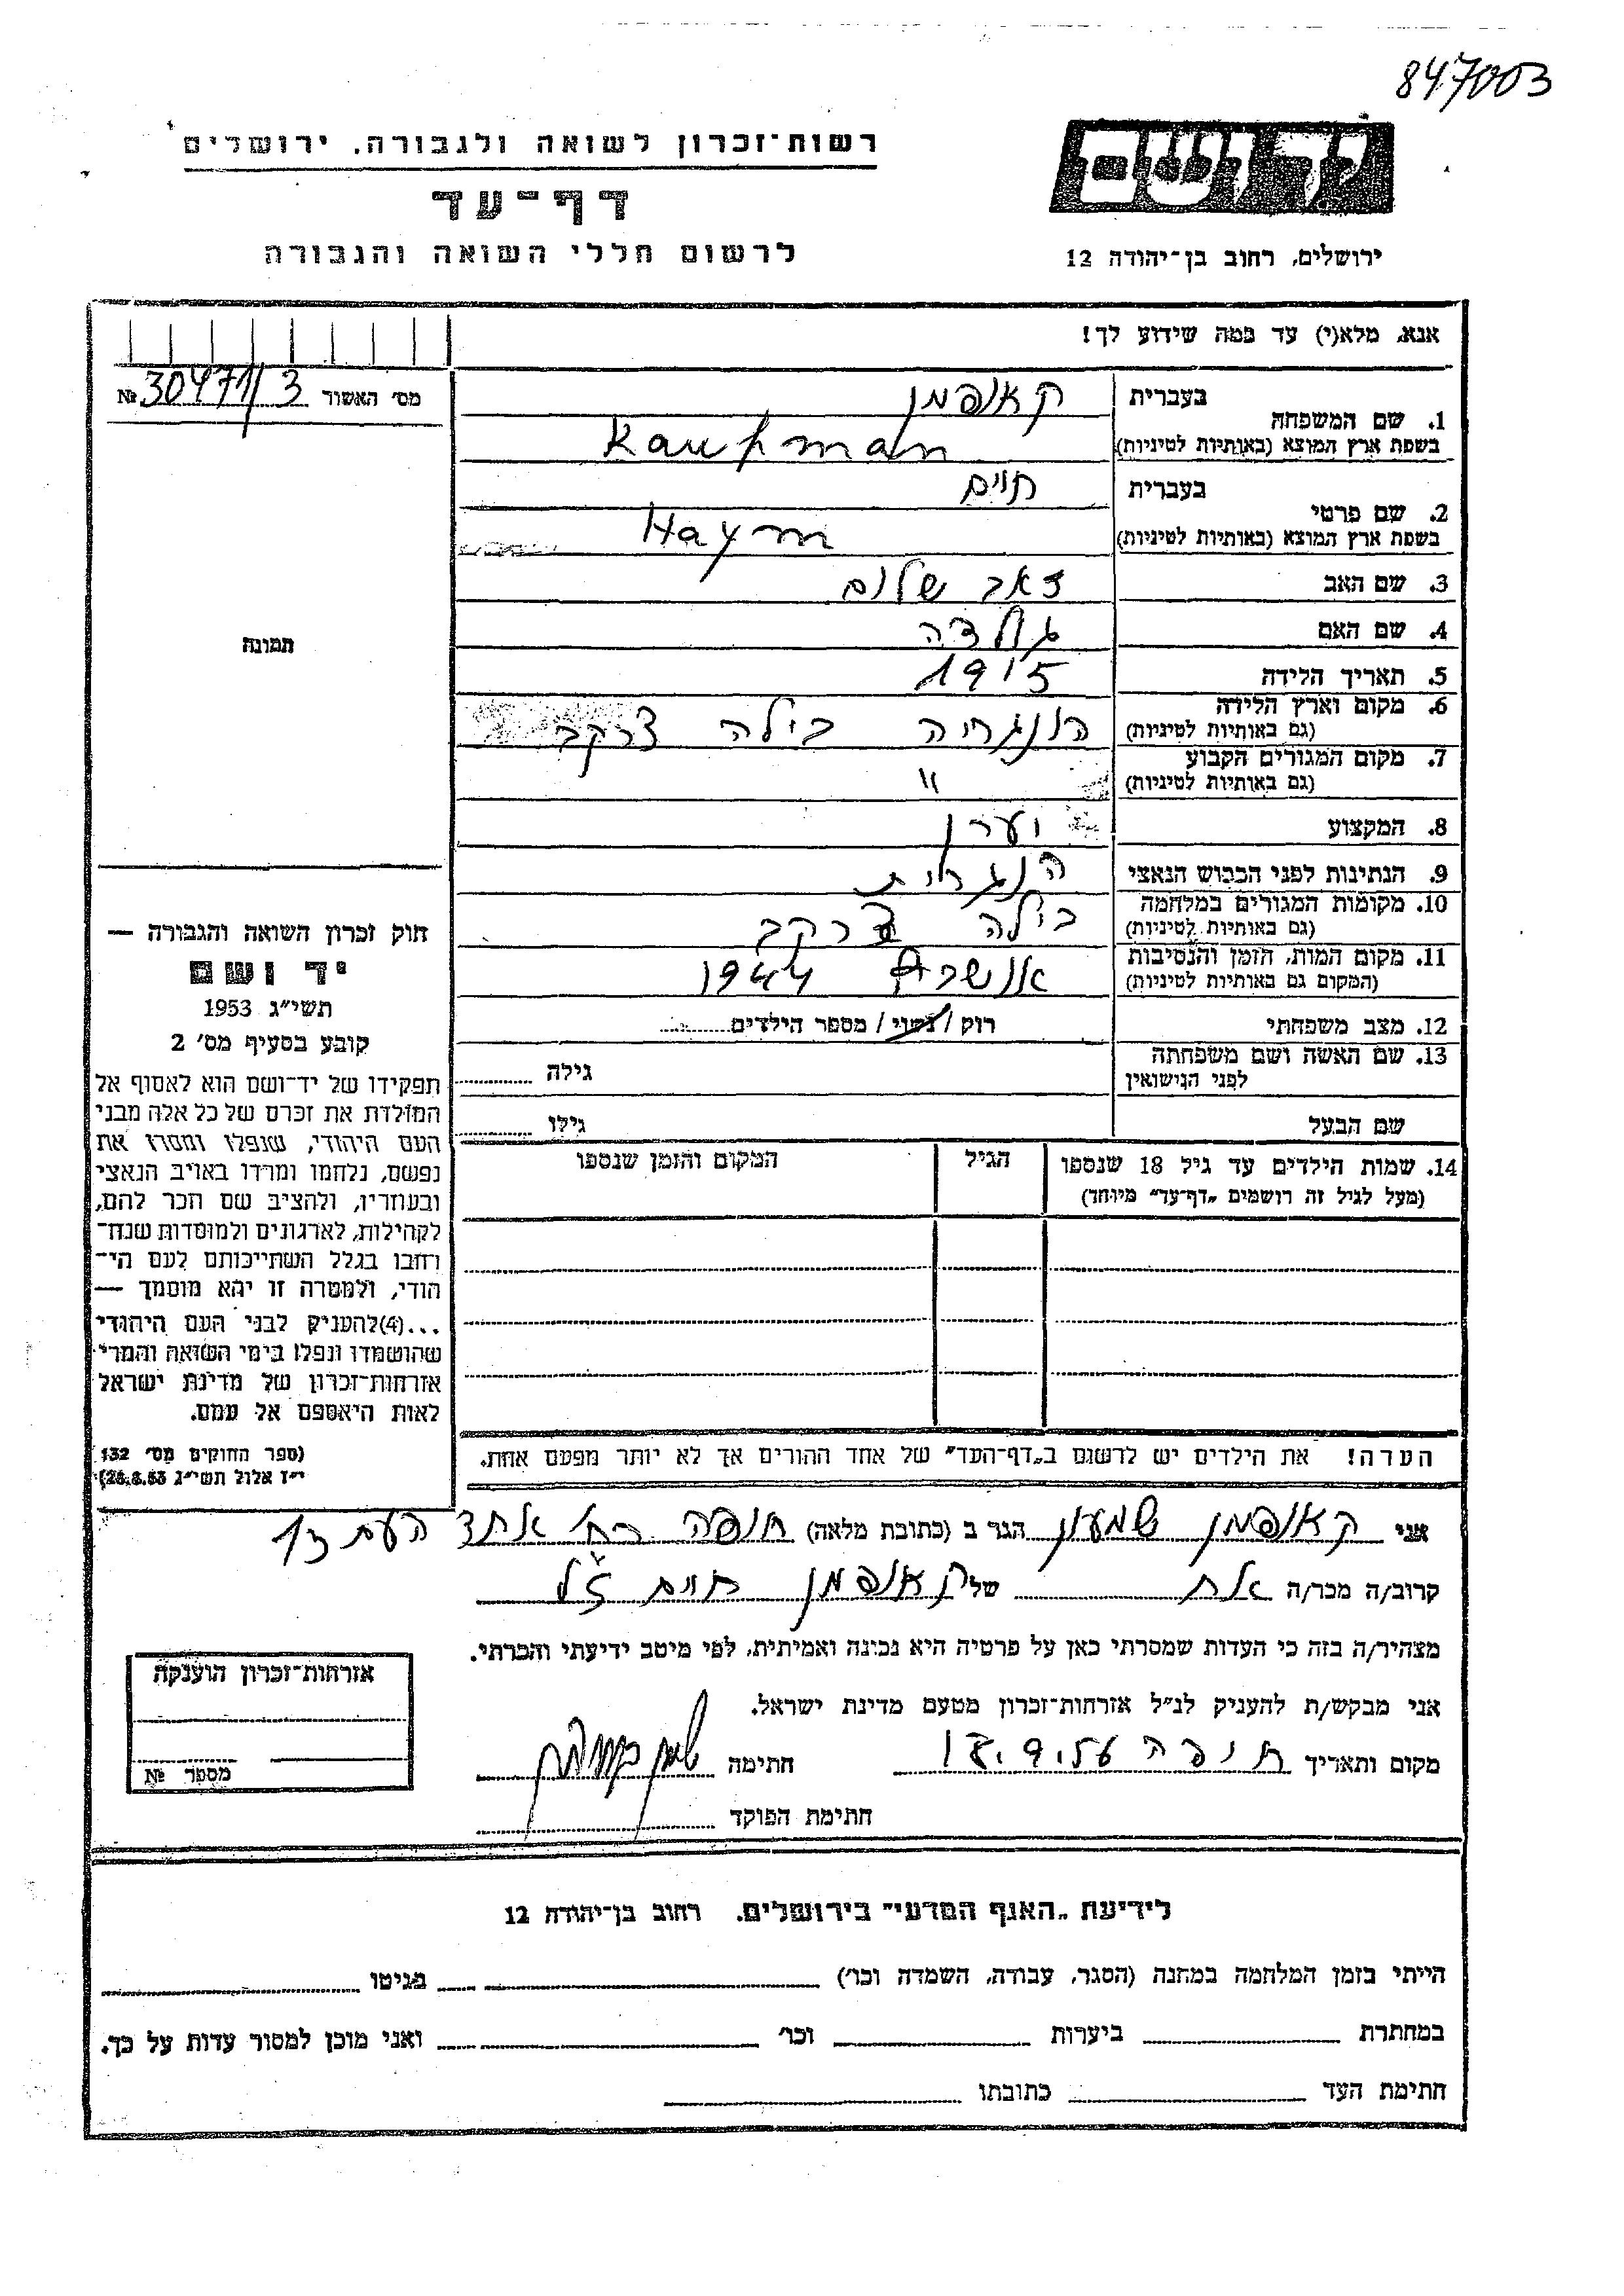 847003
יד ושם
רשות־זכרון לשואה ולגבורה, ירושלים
דף־עד
לרשום חללי השואה והגבורה
ירושלים, רחוב בן־יהודה 12
אנא, מלא(י) עד כמה שידוע לך!
מס׳ האשור № 30471/3
1. שם המשפחה
בעברית קאופמן
בשפת ארץ המוצא (באותיות לטיניות) Kaufman
2. שם פרטי
בעברית חיים
בשפת ארץ המוצא (באותיות לטיניות) Haym
3. שם האב זאב שלום
4. שם האם גולדה
5. תאריך הלידה 1915
6. מקום וארץ הלידה
(גם באותיות לטיניות) הונגריה בילה צרקב
7. מקום המגורים הקבוע
(גם באותיות לטיניות) "
8. המקצוע יערן
9. הנתינות לפני הכבוש הנאצי הנגרית
10. מקומות המגורים במלחמה
(גם באותיות לטיניות) בילה צרקב
11. מקום המות, הזמן והנסיבות
(המקום גם באותיות לטיניות) 1944
12. מצב משפחתי רוק / נשוי / מספר הילדים
13. שם האשה ושם משפחתה
לפני הנישואין גילה
שם הבעל גילו
14. שמות הילדים עד גיל 18 שנספו הגיל המקום והזמן שנספו
(מעל לגיל זה רושמים „דף־עד״ מיוחד)
הערה! את הילדים יש לרשום ב„דף־העד״ של אחד ההורים אך לא יותר מפעם אחת.
תמונה
חוק זכרון השואה והגבורה —
יד ושם
תשי״ג 1953
קובע בסעיף מס׳ 2
תפקידו של יד־ושם הוא לאסוף אל
המולדת את זכרם של כל אלה מבני
העם היהודי, שנפלו ומסרו את
נפשם, נלחמו ומרדו באויב הנאצי
ובעוזריו, ולהציב שם וזכר להם,
לקהילות, לארגונים ולמוסדות שנח־
רבו בגלל השתייכותם לעם הי־
הודי, ולמטרה זו יהא מוסמך —
...(4)להעניק לבני העם היהודי
שהושמדו ונפלו בימי השואה והמרי
אזרחות־זכרון של מדינת ישראל
לאות היאספם אל עמם.
(ספר החוקים מס׳ 132
י״ז אלול תשי״ג 28.8.53)
אני קאופמן שמעון הגר ב (כתובת מלאה) חיפה רח׳ אחד העם 13
קרוב/ה מכר/ה אח של קאופמן חיים ז״ל
מצהיר/ה בזה כי העדות שמסרתי כאן על פרטיה היא נכונה ואמיתית, לפי מיטב ידיעתי והכרתי.
אני מבקש/ת להעניק לנ״ל אזרחות־זכרון מטעם מדינת ישראל.
מקום ותאריך חיפה חתימה
חתימת הפוקד
אזרחות־זכרון הוענקה
מספר №
לידיעת „האגף המדעי״ בירושלים. רחוב בן־יהודה 12
הייתי בזמן המלחמה במחנה (הסגר, עבודה, השמדה וכו׳) בגיטו
במחתרת ביערות וכו׳ ואני מוכן למסור עדות על כך.
חתימת העד כתובתו